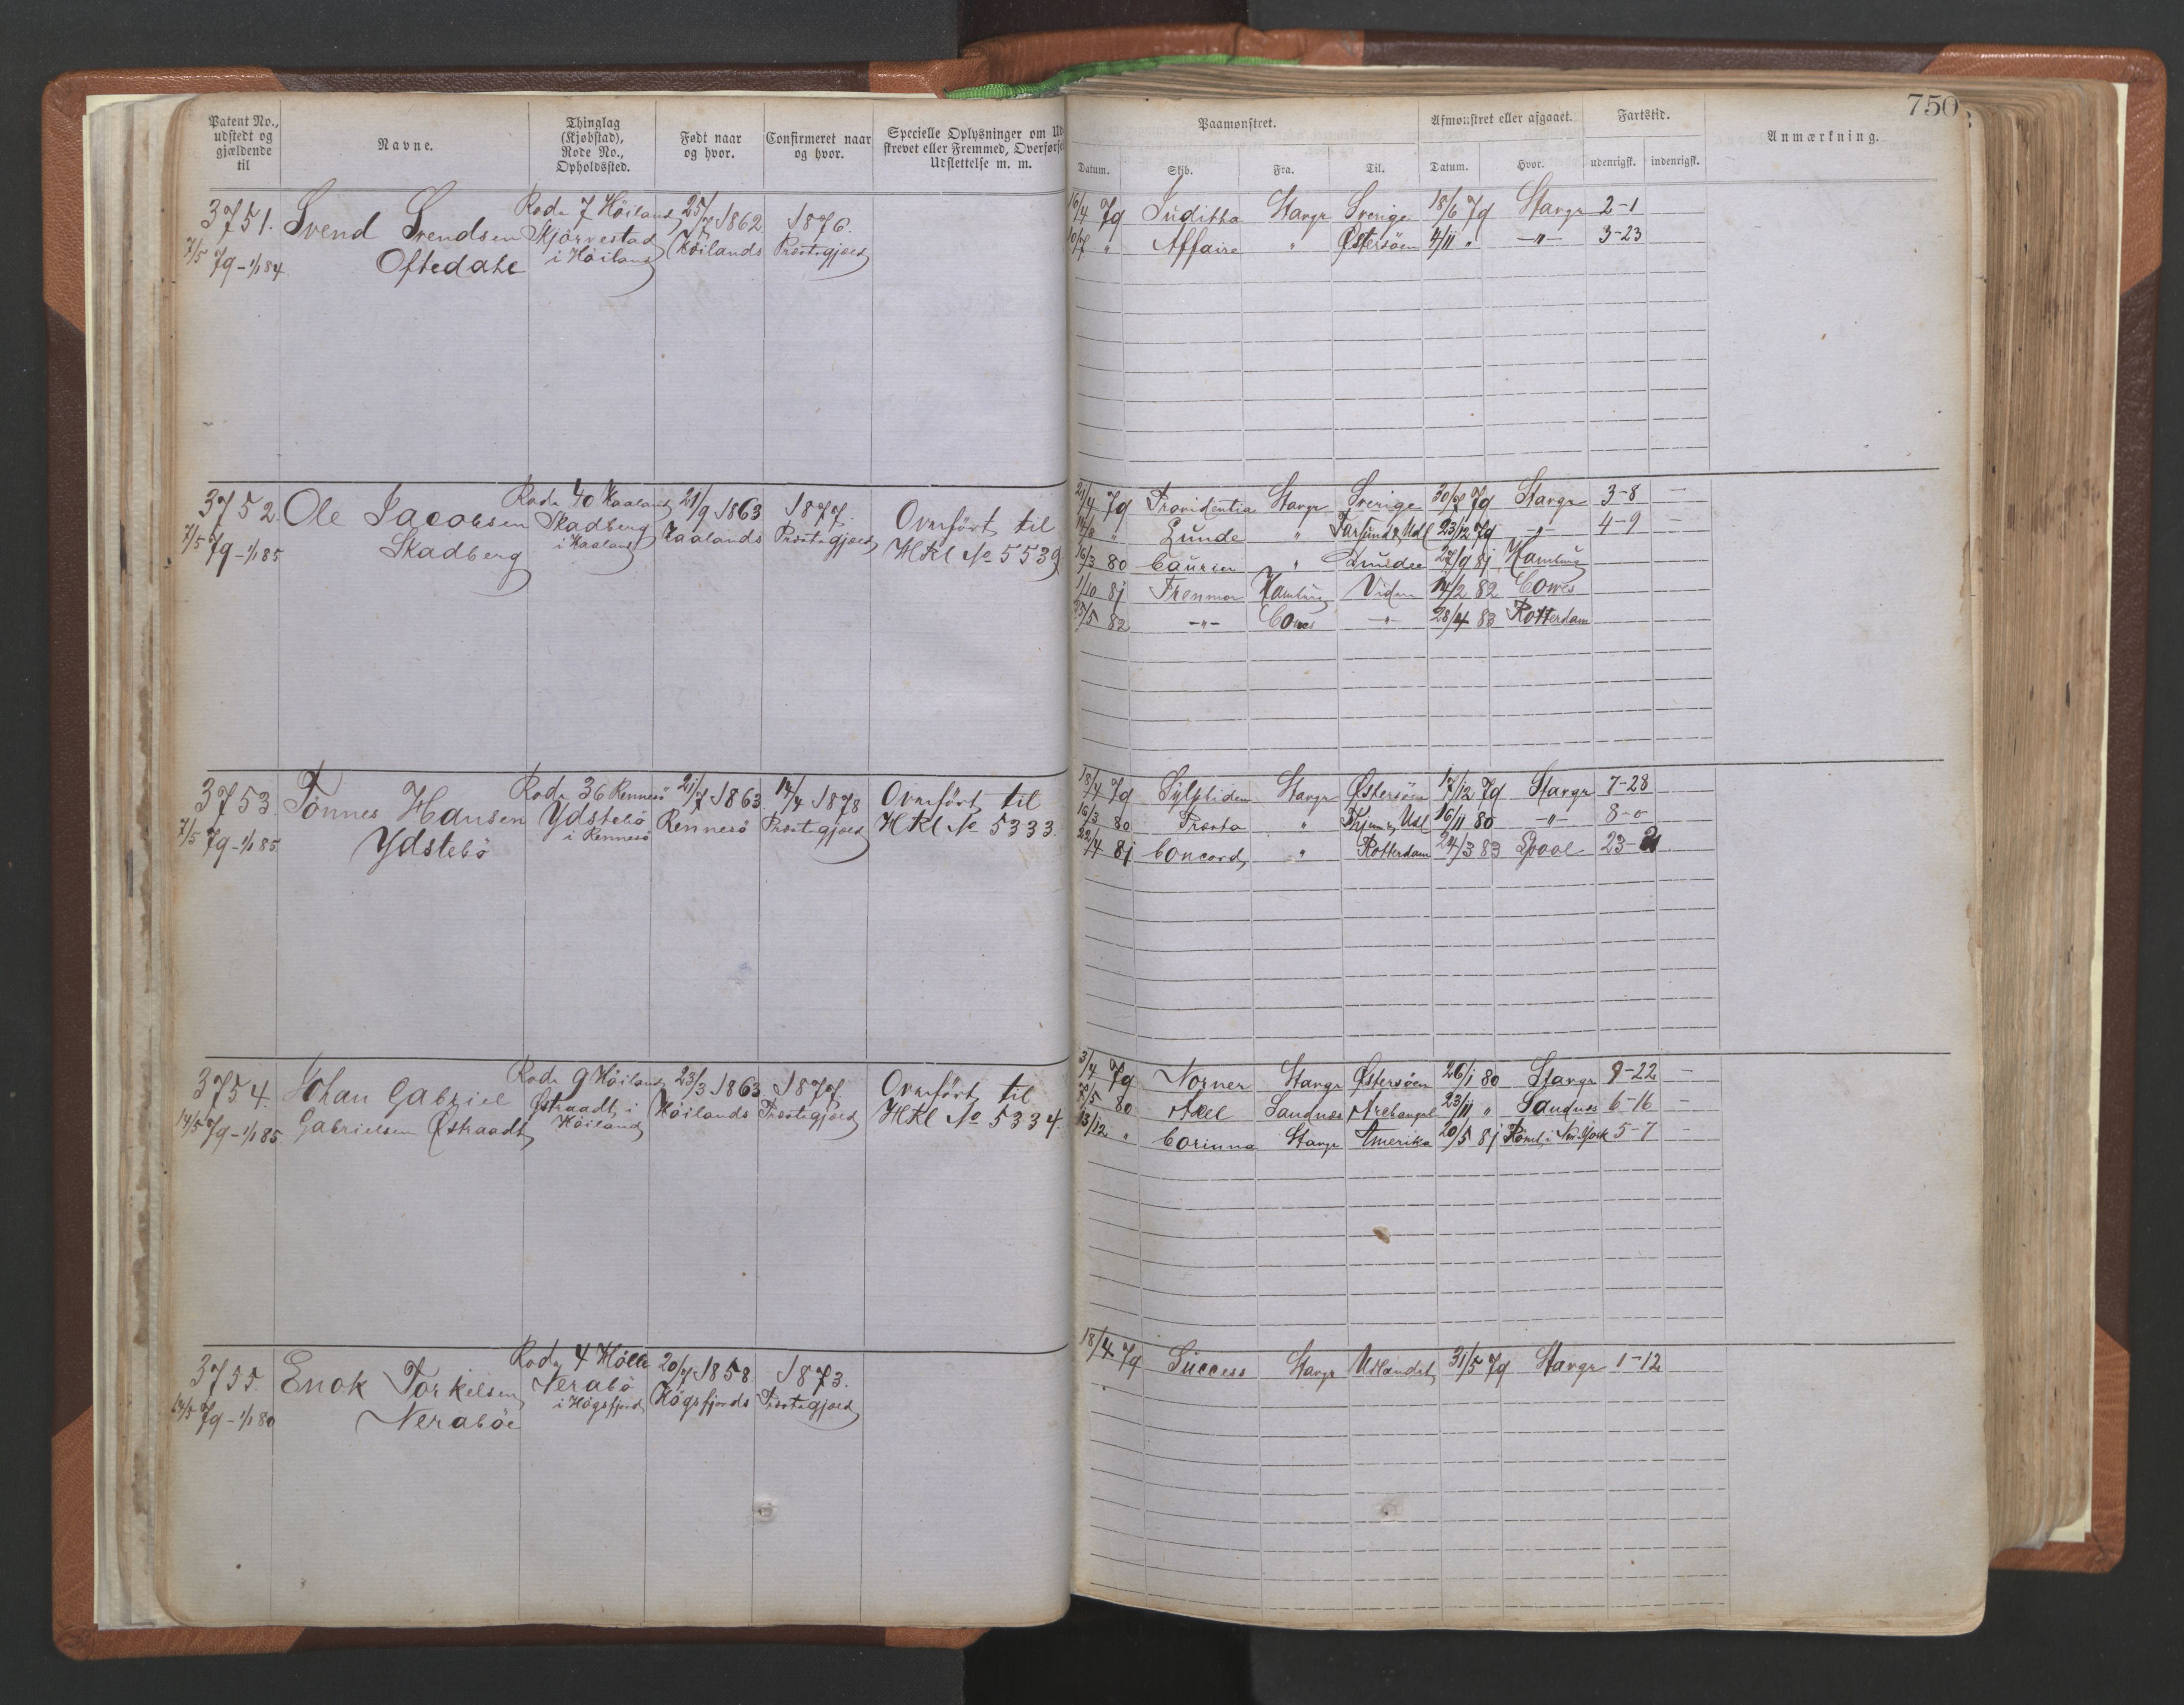 750
Patent No., udstedt og gjældende til
Navne.
Thinglag (Kjøbstad), Rode No., Opholdssted.
Født naar og hvor.
Confirmeret naar og hvor.
Specielle Oplysninger om Ud
skrevet eller Fremmed, Overførse
Udslettelse m. m.
Paamønstret.
Afmønstret eller afgaaet.
Fartstid.
Anmærkning.
Datum. Skib. Fra. Til. Datum. Hvor. udenrigsk. indenrigsk.
3751. Svend Svendsen Rode 7 Höiland 25/7 1862 1876.
7/5 79-1/1 84 Oftedahl Skjörvestad i Höiland Höilands Præstegjæld
16/4 79 Juditha Stavgr Sverige 18/6 79 Stavgr 2-1
" Affaire " Østersöen 4/11 " -"- 3-23
3752. Ole Jacobsen Rode 40 Haaland 21/9 1863 1877.
7/5 79-1/1 85 Skadberg Skadberg i Haaland Haalands Præstegjæld
Overfört til
HKl No 5539
21/4 79 Providentia Stavgr Sverige 79 Stavgr 3-8 -
" Lunde " Farsund & Udl 23/12 79 -"- 4-9 -
16/3 80 Courier " Dundee 27/9 81 Hamburg
1/10 81 Hamburg Viden 14/2 82 Cowes
23/5 82 -"- Cowes -"- 28/4 83 Rotterdam
3753. Tönnes Hansen Rode 36 Rennesö 21/7 1863 14/4 1878
7/5 79-1/1 85 Ydstebö Ydstebö i Rennesö Rennesö Præstegjæld
Overfört til
HKl No 5333.
18/4 79 Sylphiden Stavgr Østersöen 17/12 79 Stavgr 7-28
16/3 80 " Udl 16/11 80 -"- 8-0
22/4 81 Concord " Rotterdam 24/3 83 Lpool 23-2
3754. Johan Gabriel Rode 9 Höiland 23/3 1863 1877.
14/5 79-1/1 85 Gabrielsen Østraadt Østraadt i Höiland Höilands Præstegjæld
Overfört til
HKl No 5334.
3/4 79 Norner Stavgr Østersöen 26/1 80 Stavgr 9-22 -
7/5 80 Axel Sandnæs Archangel 23/11 " Sandnæs 6-16 -
13/12 " Corinna Stavgr Amerika 20/5 81 Römt i New York 5-7 -
3755. Enok Torkelsen Rode 4 Hölle 20/7 1858 1873.
14/5 79-1/1 80 Neraböe Nerabö i Högsfjord Högsfjords Præstegjæld
18/4 79 Success Stavgr Udlandet 31/5 79 Stavgr 1-12